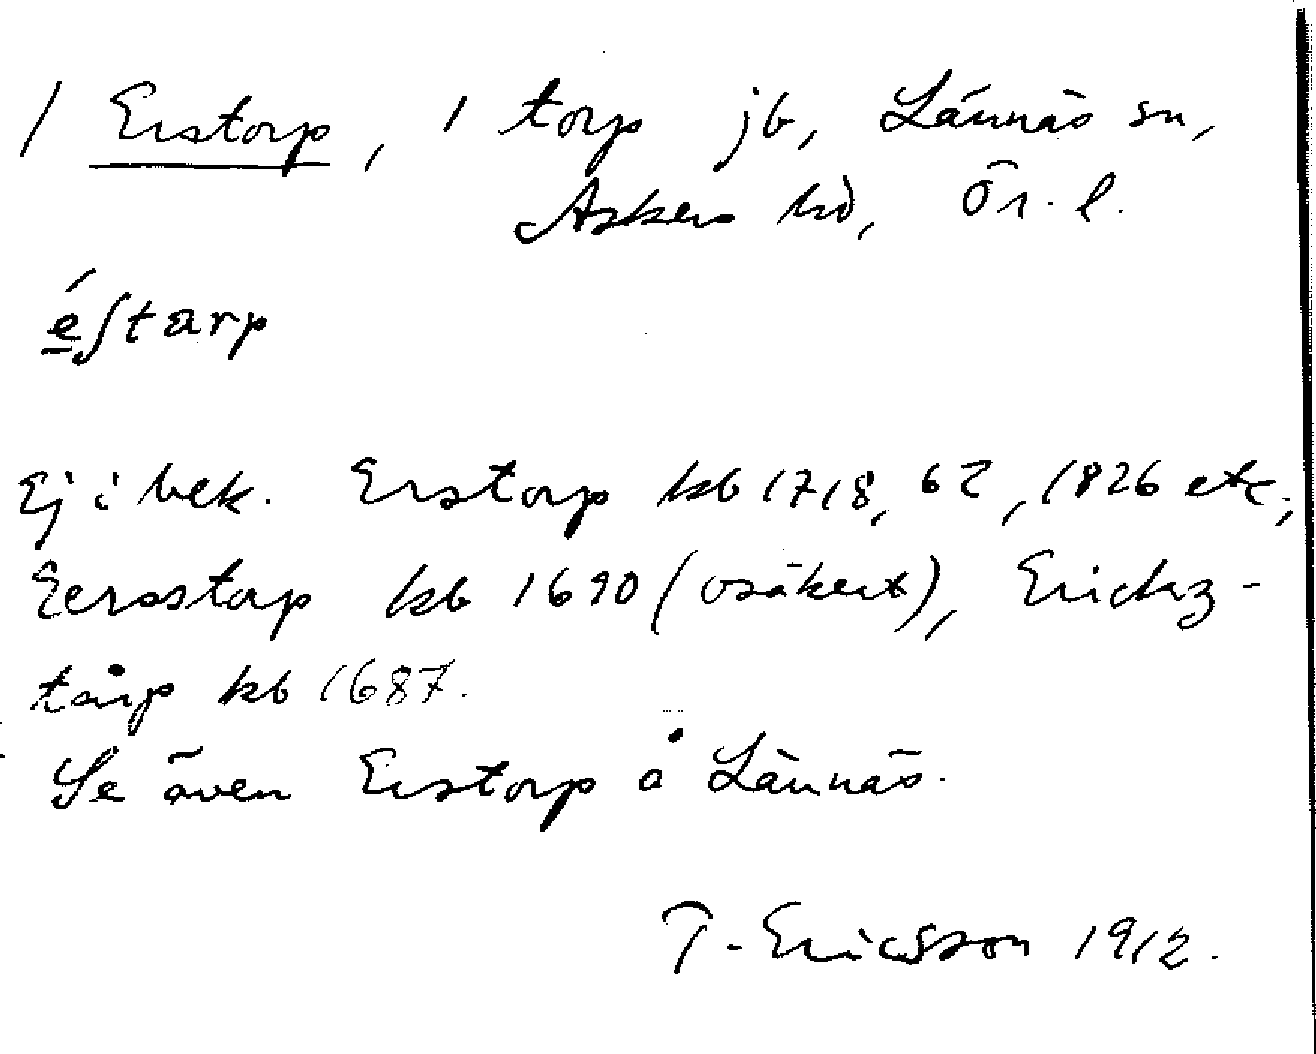 / Erstorp, 1 torp jb, Lännäs sn,
Askers hd, Ör. l.
éstarp
Ej i bek. Erstorp kb 1718, 62, 1826 etc.,
Eersstorp kb 1690 (osäkert), Erickz-
tårp kb 1687.
Se även Erstorp å Lännäs.
T. Ericsson 1912.